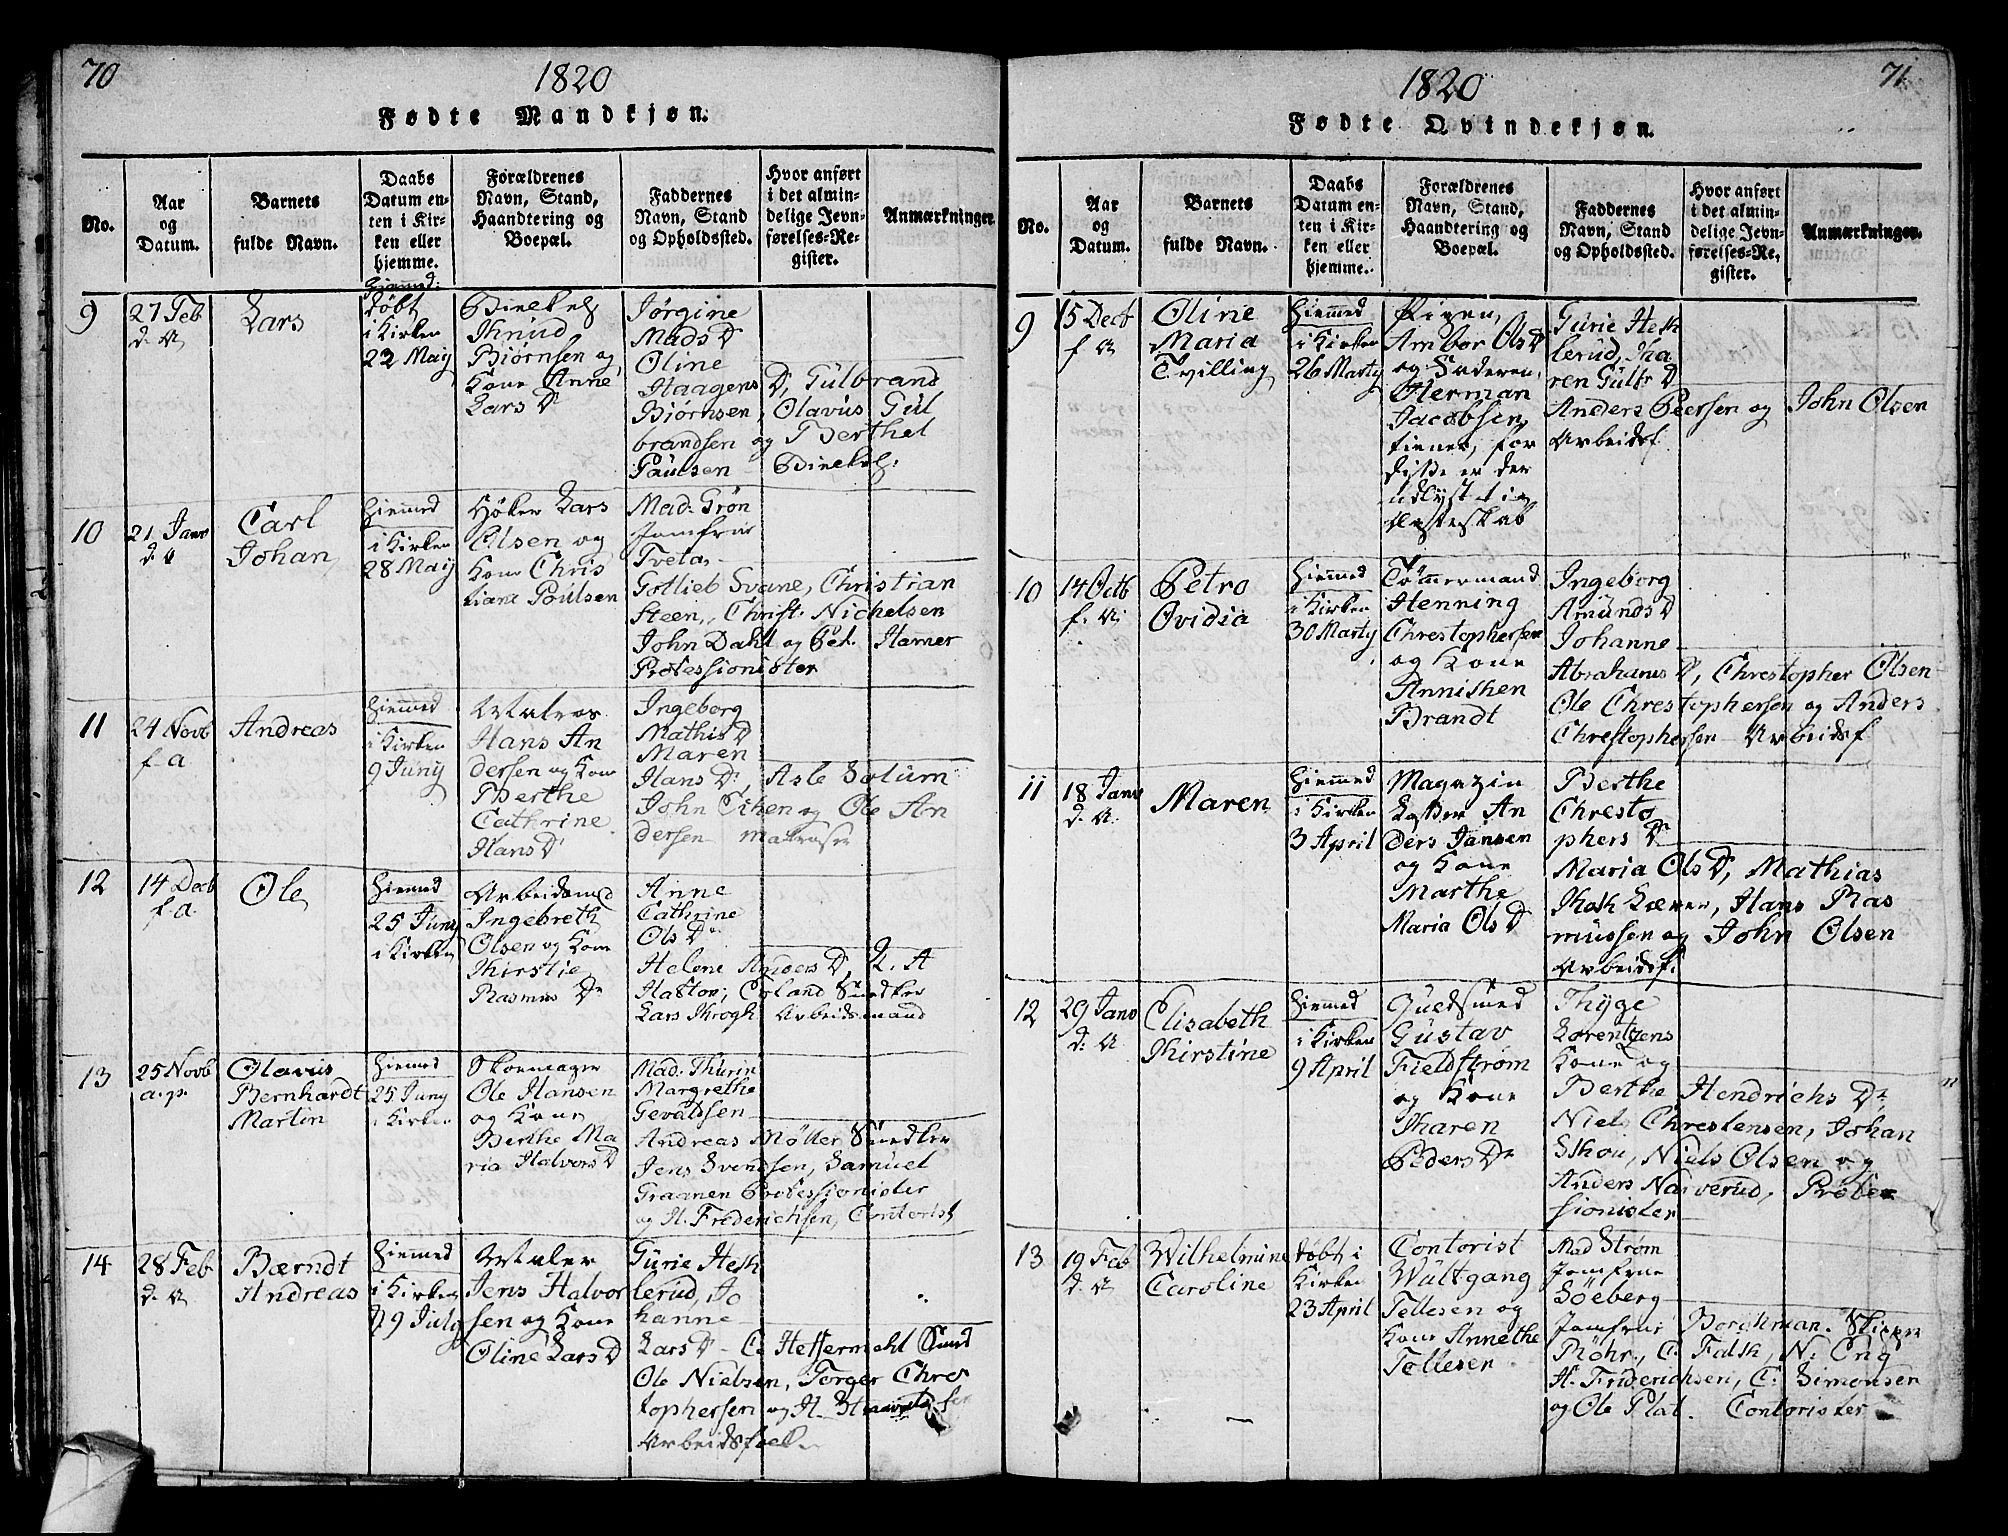 70
1820
Fødte Mandkjøn.
No.
Aar
og
Datum.
Barnets
fulde Navn.
Daabs
Datum en-
ten i Kir-
ken eller
hjemme.
Forældrenes
Navn, Stand,
Haandtering og
Boepæl.
Faddernes
Navn, Stand
og Opholdssted.
Hvor anført
i det almin-
delige Jevn-
førelses-Re-
gister.
Anmærkninger.
9
27 Feb
d. A
Lars
Hiemmed:
døbt
i Kirken
22 Maij
Knud
Biørnsen og
Kone Anne
Lars D
Jørgine
Mads D
Oline
Haagens D, Gulbrand
Biørnsen, Olavus Gul
brandsen og Berthel
Paulsen
10
21 Janv
d. A
Carl
Johan
Hiemmed
i Kirken
28 Maij
Høker Lars
Olsen og
Kone Chris
tiane Poulsen
Mad. Grøn
Jomfrue
Tveta
Gotlieb Svane, Christian
Steen, Christ: Nichelsen
John Dahl og Ped. Hamer
Professionister
11
24 Novb
f. a
Andreas
Hiemmed
i Kirken
9 Juny
Matros
Hans An
dersen og Kone
Berthe
Cathrine
Hans D
Ingeborg
Mathis D
Maren
Hans D, Asle Solum
John Eiken og Ole An
dersen matroser
12
14 Decb
f. a.
Ole
Hiemmed
25 Juny
i Kirken
Arbeidsmd
Ingebreth
Olsen og Kone
Kirstie
Rasmus D
Anne
Cathrine
Ols D
Helene Anders D, L. A
Hastor, Eoland Snedker
Lars Krogh Arbeidsmand
13
25 Novb
a. p.
Olavus
Bernhardt
Martin
Hiemmed
25 Juny
i Kirken
Skoemager
Ole Hansen
og Kone
Berthe Ma
ria Halvors D
Mad. Thurin
Margrethe
Gevaldsen
Andreas Møller Snedker
Jens Svendsen, Samuel
Graanen Professionister
og H. Frederichsen, Contorist
14
28 Feb
d. A
Bærndt
Andreas
Hiemmed
i Kirken
9 July
Maler
Jens Halvor
sen og Kone
Oline Lars D
Gurie Hesk
lerud, Jo
hanne
Lars D - C. Heffermehl Smed
Ole Nielsen, Torger Chres
tophersen og H.
Arbeidsfolk
1820
71
Fødte Qvindekjøn.
No.
Aar
og
Datum.
Barnets
fulde Navn.
Daabs
Datum en-
ten i Kir-
ken eller
hjemme.
Forældrenes
Navn, Stand,
Haandtering og
Boepæl.
Faddernes
Navn, Stand
og Opholdssted.
Hvor anført
i det almin-
delige Jevn-
førelses-Re-
gister.
Anmærkninger.
9
15 Decb
f. A
Oline
Maria
Tvilling
Hiemmed
i Kirken
26 Marty
Pigen,
Ambor Ols D
og Faderen,
Herman
Jacobsen,
tiener, for
disse er der
udlyst til
Ægteskab
Gurie Hesk
lerud, Ka
ren Gulbr D
Anders Peersen og John Olsen
Arbeidsf.
10
14 Octb
f. A.
Petro
Ovidia
Hiemmed
i Kirken
30 Marty
Tømmermand
Henning
Chrestophersen
og Kone
Annichen
Brandt
Ingeborg
Amunds D
Johanne
Abrahams D, Chrestopher Olsen
Ole Chrestophersen og Anders
Chrestophersen Arbeidsf
11
18 Janv
d. A.
Maren
Hiemmed
i Kirken
3 April
Magazin
An
ders Jansen
og Kone
Marthe
Maria Ols D
Berthe
Chresto
phers D
Maria Ols D, Mathias
Hans Ras
mussen og John Olsen
Arbeidsf.
12
29 Janv
d: A
Elisabeth
Kirstine
Hiemmed
i Kirken
9 April
Guldsmed
Gustav
Fieldstrøm
og Kone
Karen
Peders D
Thyge
Lorentzens
Kone og
Berthe Hendrichs D
Niels Chrestensen, Johan
Skou, Niels Olsen og
Anders Narverud, Profes
sionister
13
19 Feb
d. A
Wilhelmine
Caroline
døbt i
Kirken
23 April
Contorist
Wulfgang
Tellesen og
Kone Annethe
Tollesen
Mad Strøm
Jomfrue
Søeberg
Jomfrue Borchman. Skipper
Røhr, C. Falsk, N: Eng
H. Friderichsen, C. Simonsen
og Ole Plat. Contorister